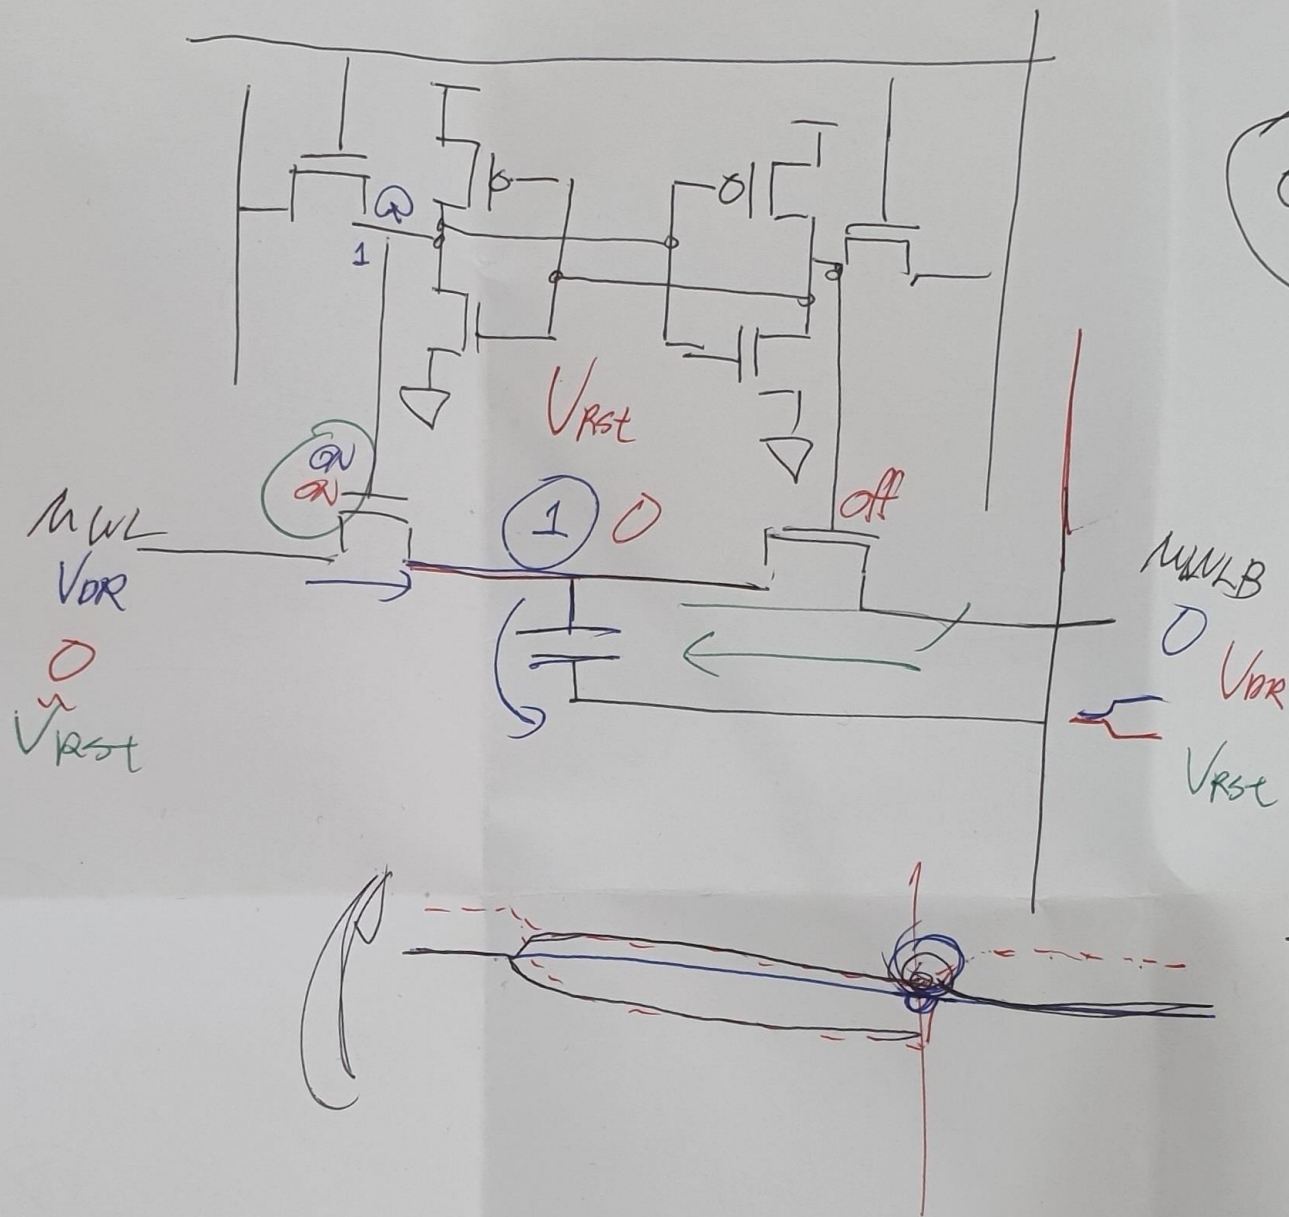 Q
1
VRst
ON
ON
off
1
0
MWL
VDR
0
VRst
MWLB
0
VDR
VRst